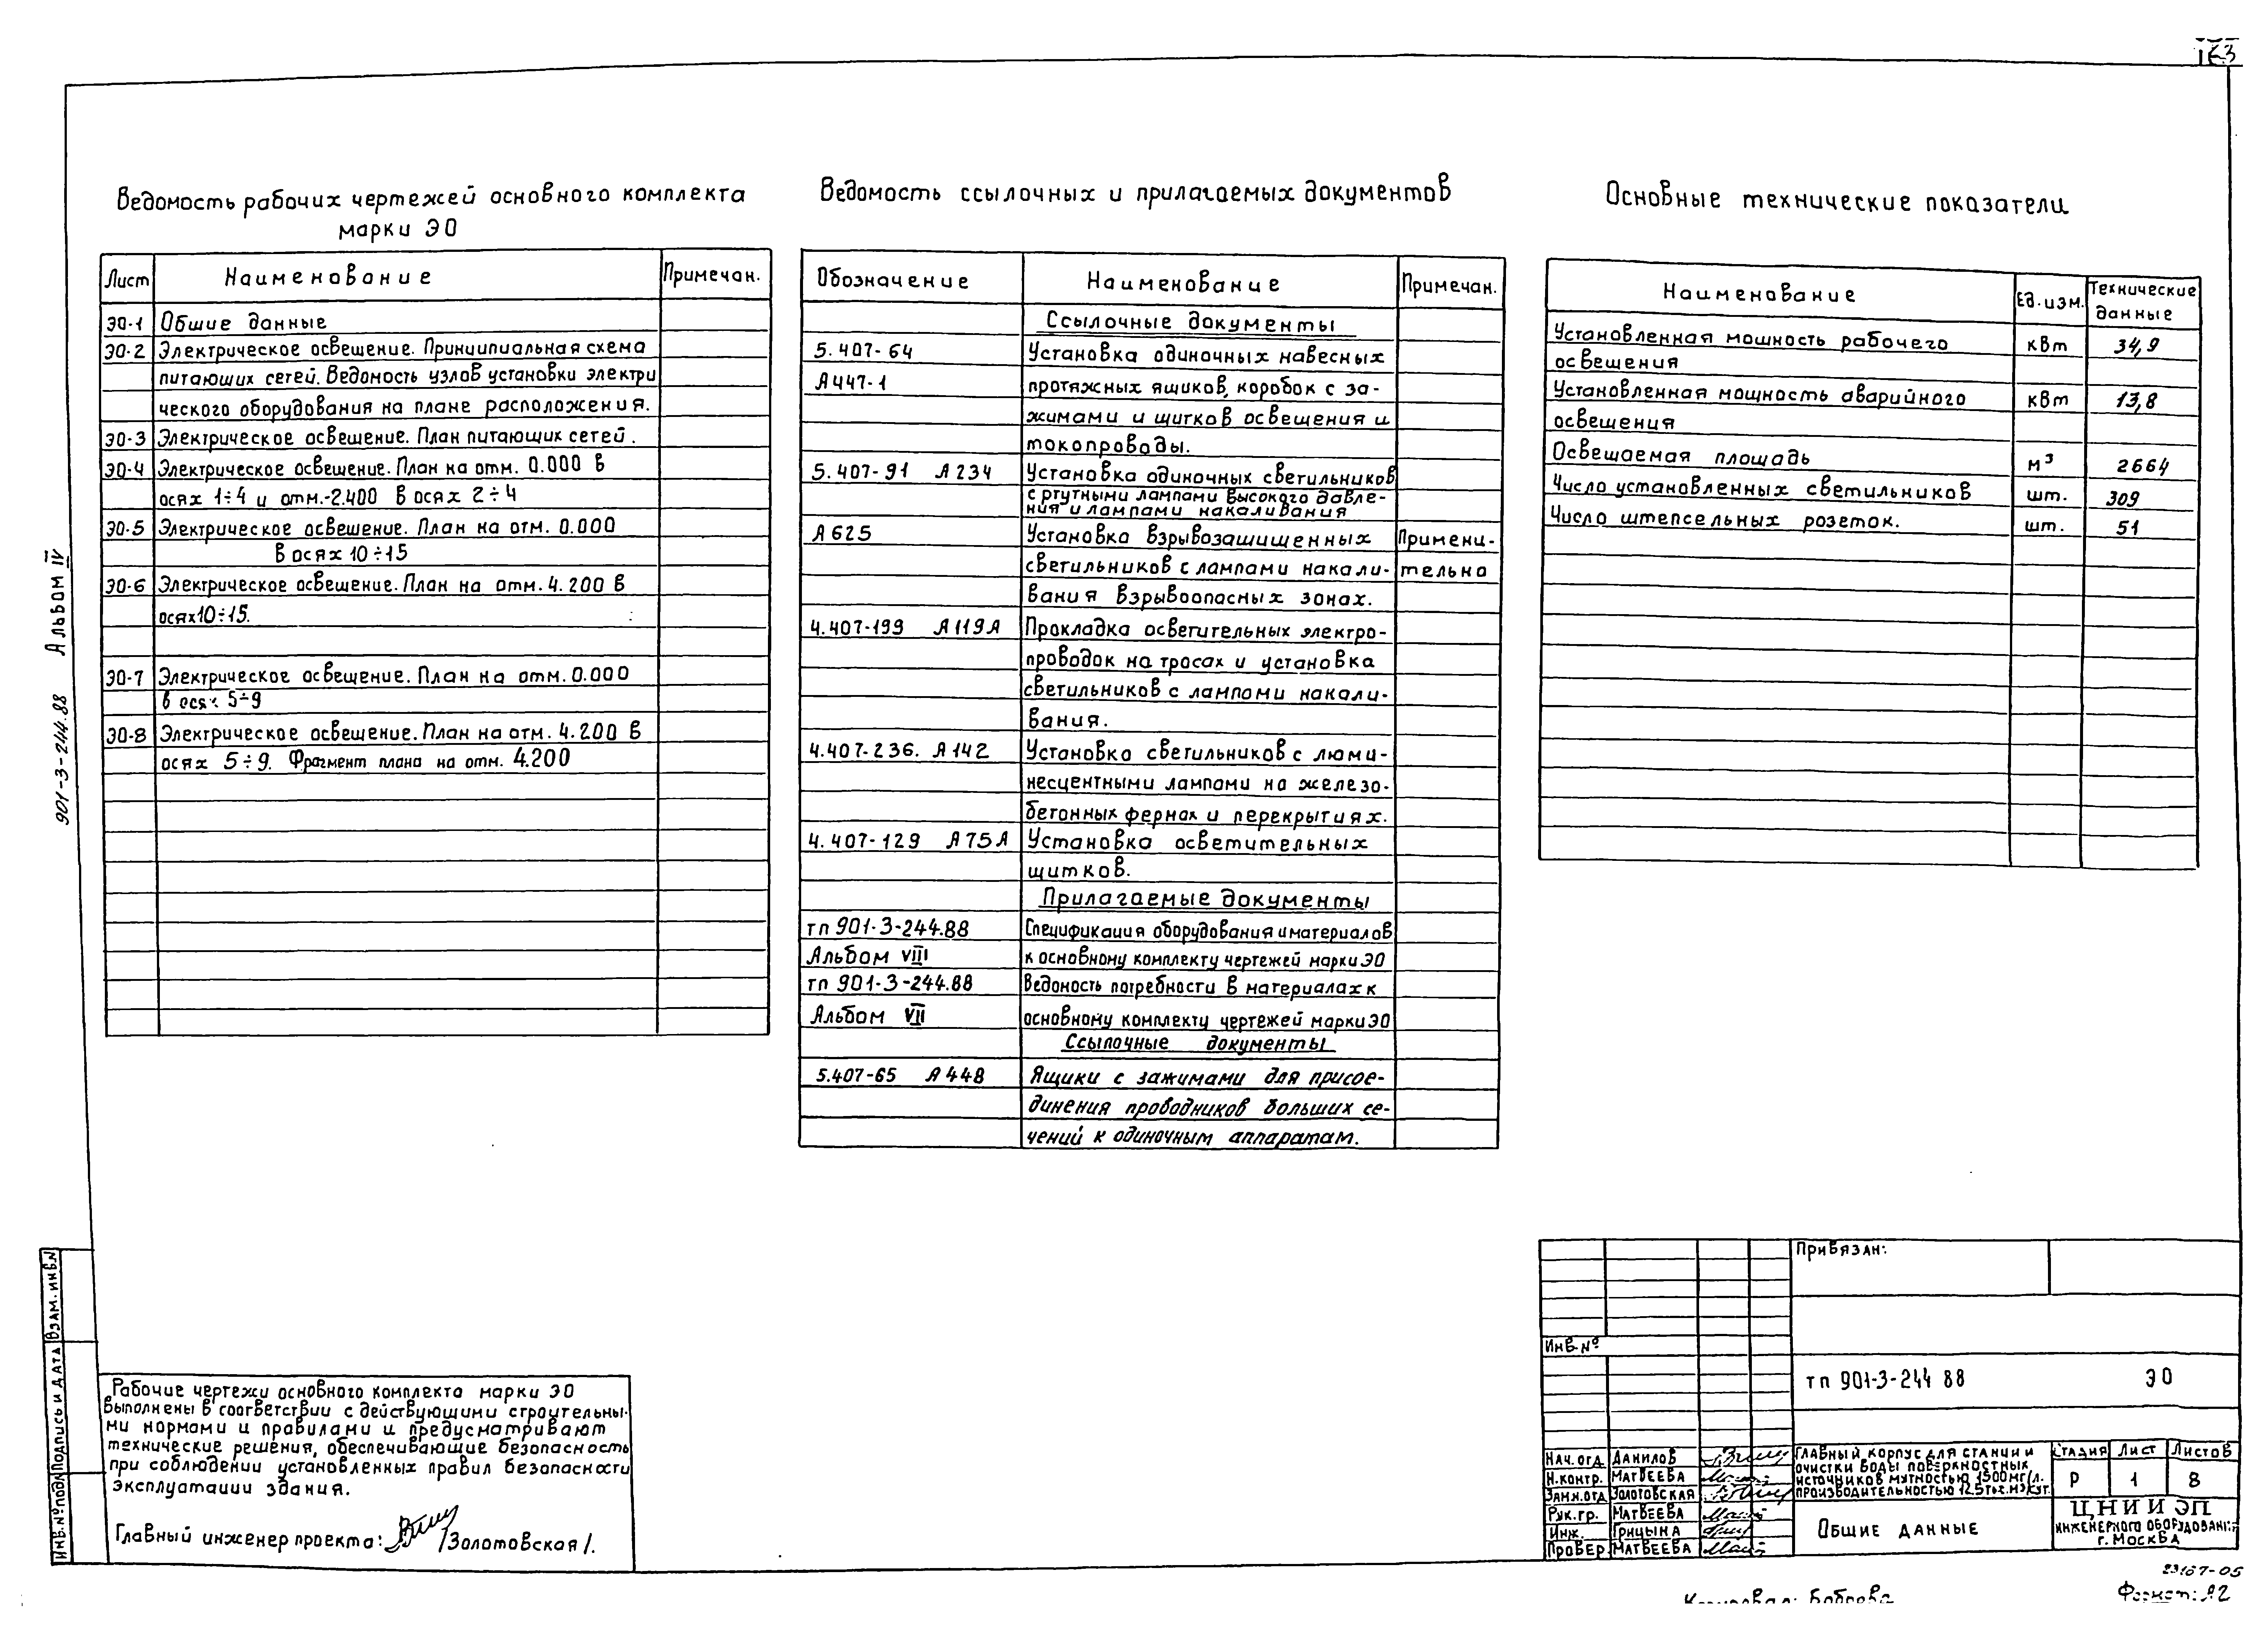 Ведомость рабочих чертежей основного комплекта
марки ЭО
Лист Наименование Примечан.
ЭО-1 Общие данные
ЭО-2 Электрическое освещение. Принципиальная схема
питающих сетей. Ведомость узлов установки электри
ческого оборудования на плане расположения.
ЭО-3 Электрическое освещение. План питающих сетей.
ЭО-4 Электрическое освещение. План на отм. 0.000 в
осях 1÷4 и отм.-2.400 в осях 2÷4
ЭО-5 Электрическое освещение. План на отм. 0.000
в осях 10÷15
ЭО-6 Электрическое освещение. План на отм. 4.200 в
осях 10÷15.
ЭО-7 Электрическое освещение. План на отм. 0.000
в осях 5÷9
ЭО-8 Электрическое освещение. План на отм. 4.200 в
осях 5÷9. Фрагмент плана на отм. 4.200
Ведомость ссылочных и прилагаемых документов
Обозначение Наименование Примечан.
Ссылочные документы
5.407-64 Установка одиночных навесных
А447-1 протяжных ящиков, коробок с за-
жимами и щитков освещения и
токопроводы.
5.407-91 А234 Установка одиночных светильников
с ртутными лампами высокого давле-
ния и лампами накаливания
А625 Установка взрывозащищенных Примени-
светильников с лампами накали- тельно
вания взрывоопасных зонах.
4.407-199 А119А Прокладка осветительных электро-
проводок на тросах и установка
светильников с лампами накали-
вания.
4.407-236. А142 Установка светильников с люми-
несцентными лампами на железо-
бетонных фермах и перекрытиях.
4.407-129 А75А Установка осветительных
щитков.
Прилагаемые документы
тп 901-3-244.88 Спецификация оборудования и материалов
Альбом VIII к основному комплекту чертежей марки ЭО
тп 901-3-244.88 Ведомость потребности в материалах к
Альбом VII основному комплекту чертежей марки ЭО
Ссылочные документы
5.407-65 А448 Ящики с зажимами для присое-
динения проводников больших се-
чений к одиночным аппаратам.
Основные технические показатели
Наименование Ед.изм. Технические данные
Установленная мощность рабочего квт 34,9
освещения
Установленная мощность аварийного квт 13,8
освещения
Освещаемая площадь м³ 2664
Число установленных светильников шт. 309
Число штепсельных розеток. шт. 51
901-3-244.88 Альбом IV
Инв.№подл Подпись и дата Взам.инв.№
Рабочие чертежи основного комплекта марки ЭО
выполнены в соответствии с действующими строительны-
ми нормами и правилами и предусматривают
технические решения, обеспечивающие безопасность
при соблюдении установленных правил безопасности
эксплуатации здания.
Главный инженер проекта: /Золотовская/.
Привязан:
Инв.№
тп 901-3-244 88 ЭО
Нач.отд Данилов
Н.контр. Матвеева
Зам.н.отд Золотовская
Рук.гр. Матвеева
Инж. Грицына
Провер Матвеева
Главный корпус для станции и
очистки воды поверхностных
источников мутностью 1500мг/л.
производительностью 12.5тыс.м³/сут.
Стадия Лист Листов
Р 1 8
Общие данные
ЦНИИЭП
инженерного оборудован.
г. Москва
23167-05
Копировал: Боброва Формат: А2